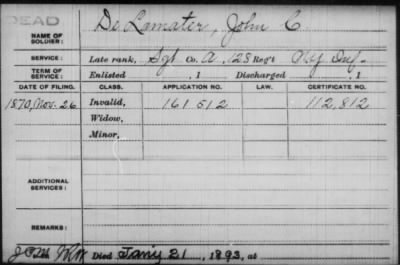 DEAD
NAME OF SOLDIER: De Lamater, John C
SERVICE: Late rank, Sgt Co. A, 128 Reg't NY Inf.
TERM OF SERVICE: Enlisted , 1 Discharged , 1
DATE OF FILING. CLASS. APPLICATION NO. LAW. CERTIFICATE NO.
1870, Nov. 26 Invalid, 161 512 112,812
Widow,
Minor,
ADDITIONAL SERVICES:
REMARKS:
Died Jan'y 21, 1893, at